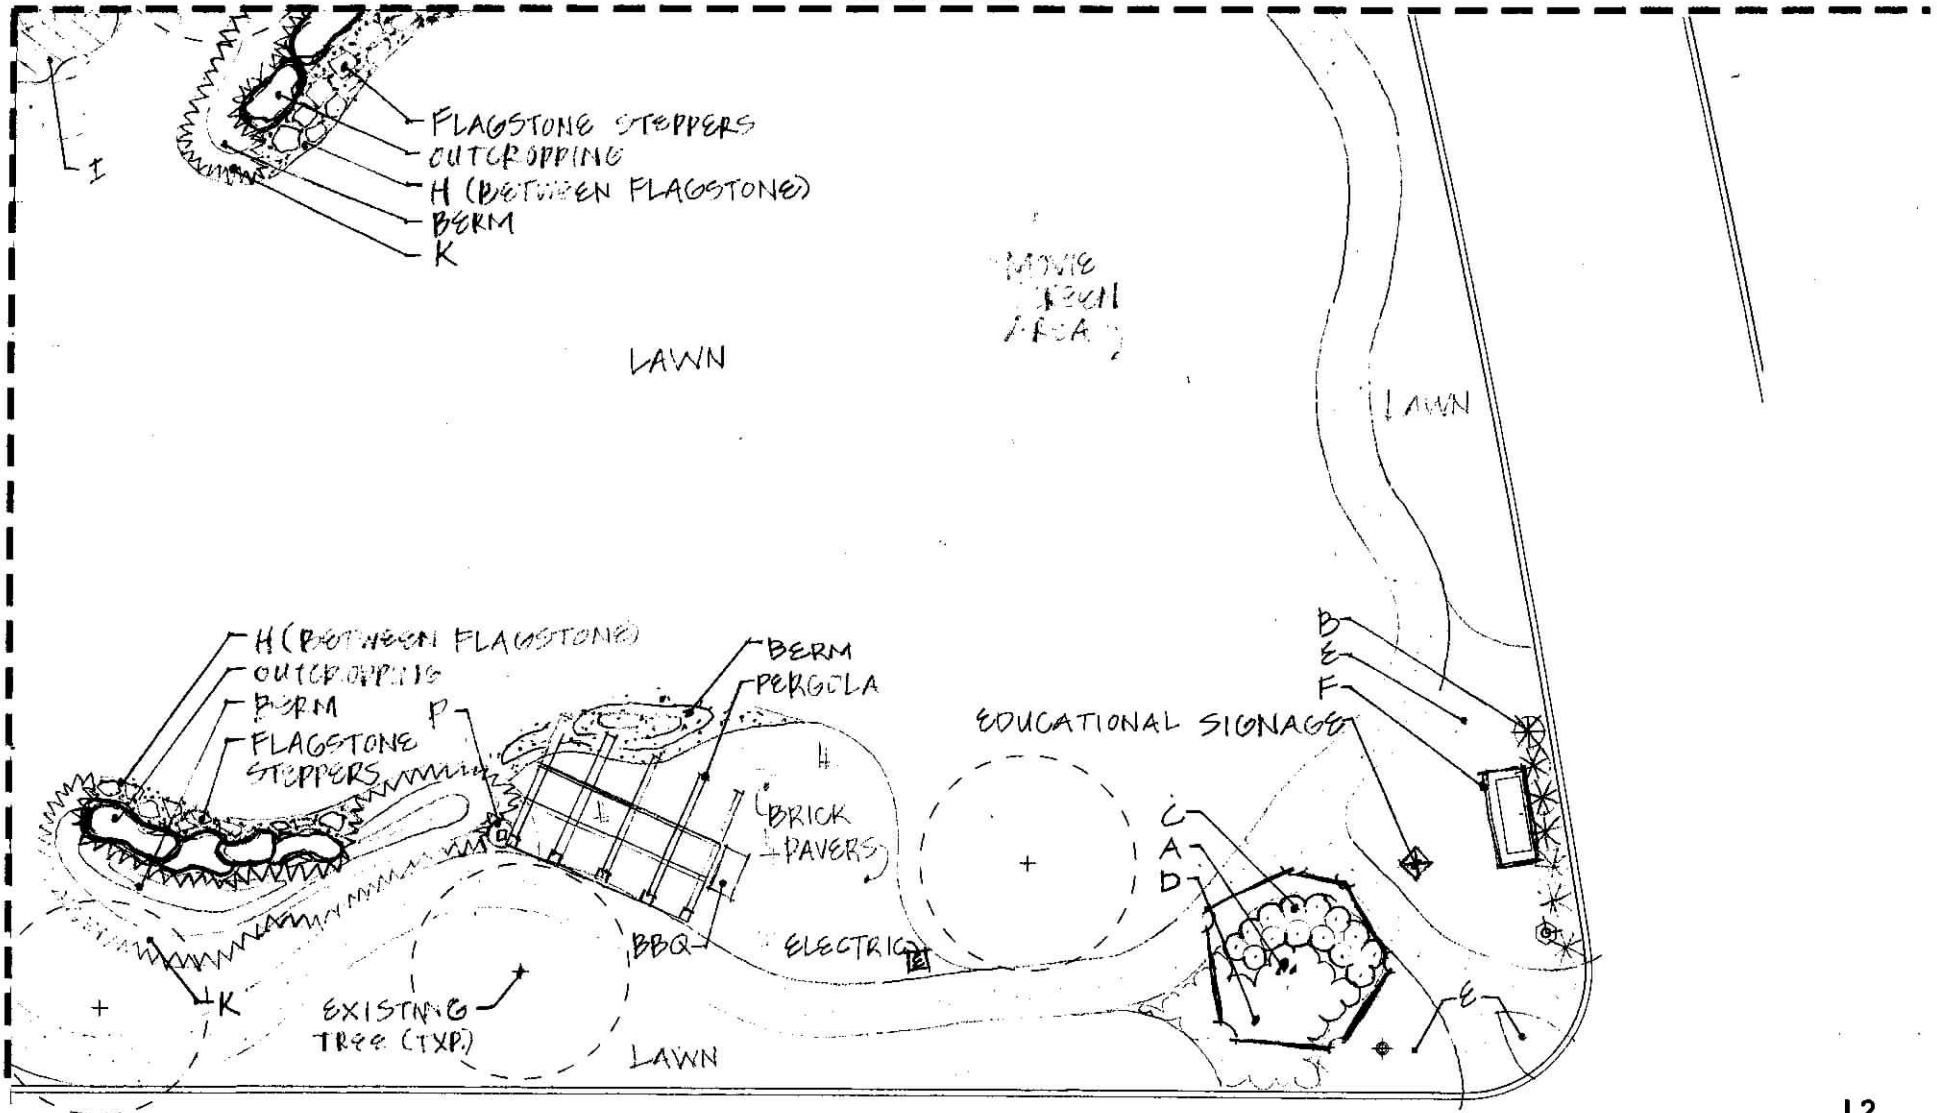 FLAGSTONE STEPPERS
OUTCROPPING
H (BETWEEN FLAGSTONE)
BERM
K
I
MOVIE
SCREEN
AREA
LAWN
LAWN
H (BETWEEN FLAGSTONE)
OUTCROPPING
BERM
FLAGSTONE
STEPPERS
P
BERM
PERGOLA
B
E
F
EDUCATIONAL SIGNAGE
H
BRICK
PAVERS
C
A
D
BBQ
ELECTRIC
E
K
EXISTING
TREE (TYP.)
LAWN
E